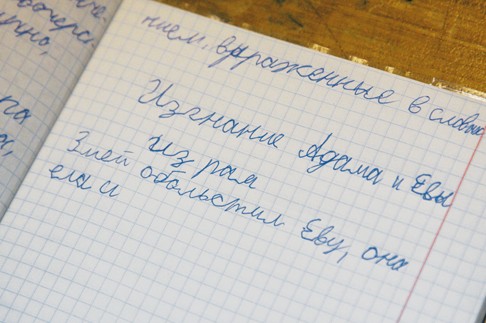 че-
рно,
нием, выраженные в слова
Изгнание Адама и Евы
из рая
Змей обольстил Еву, она
ела и